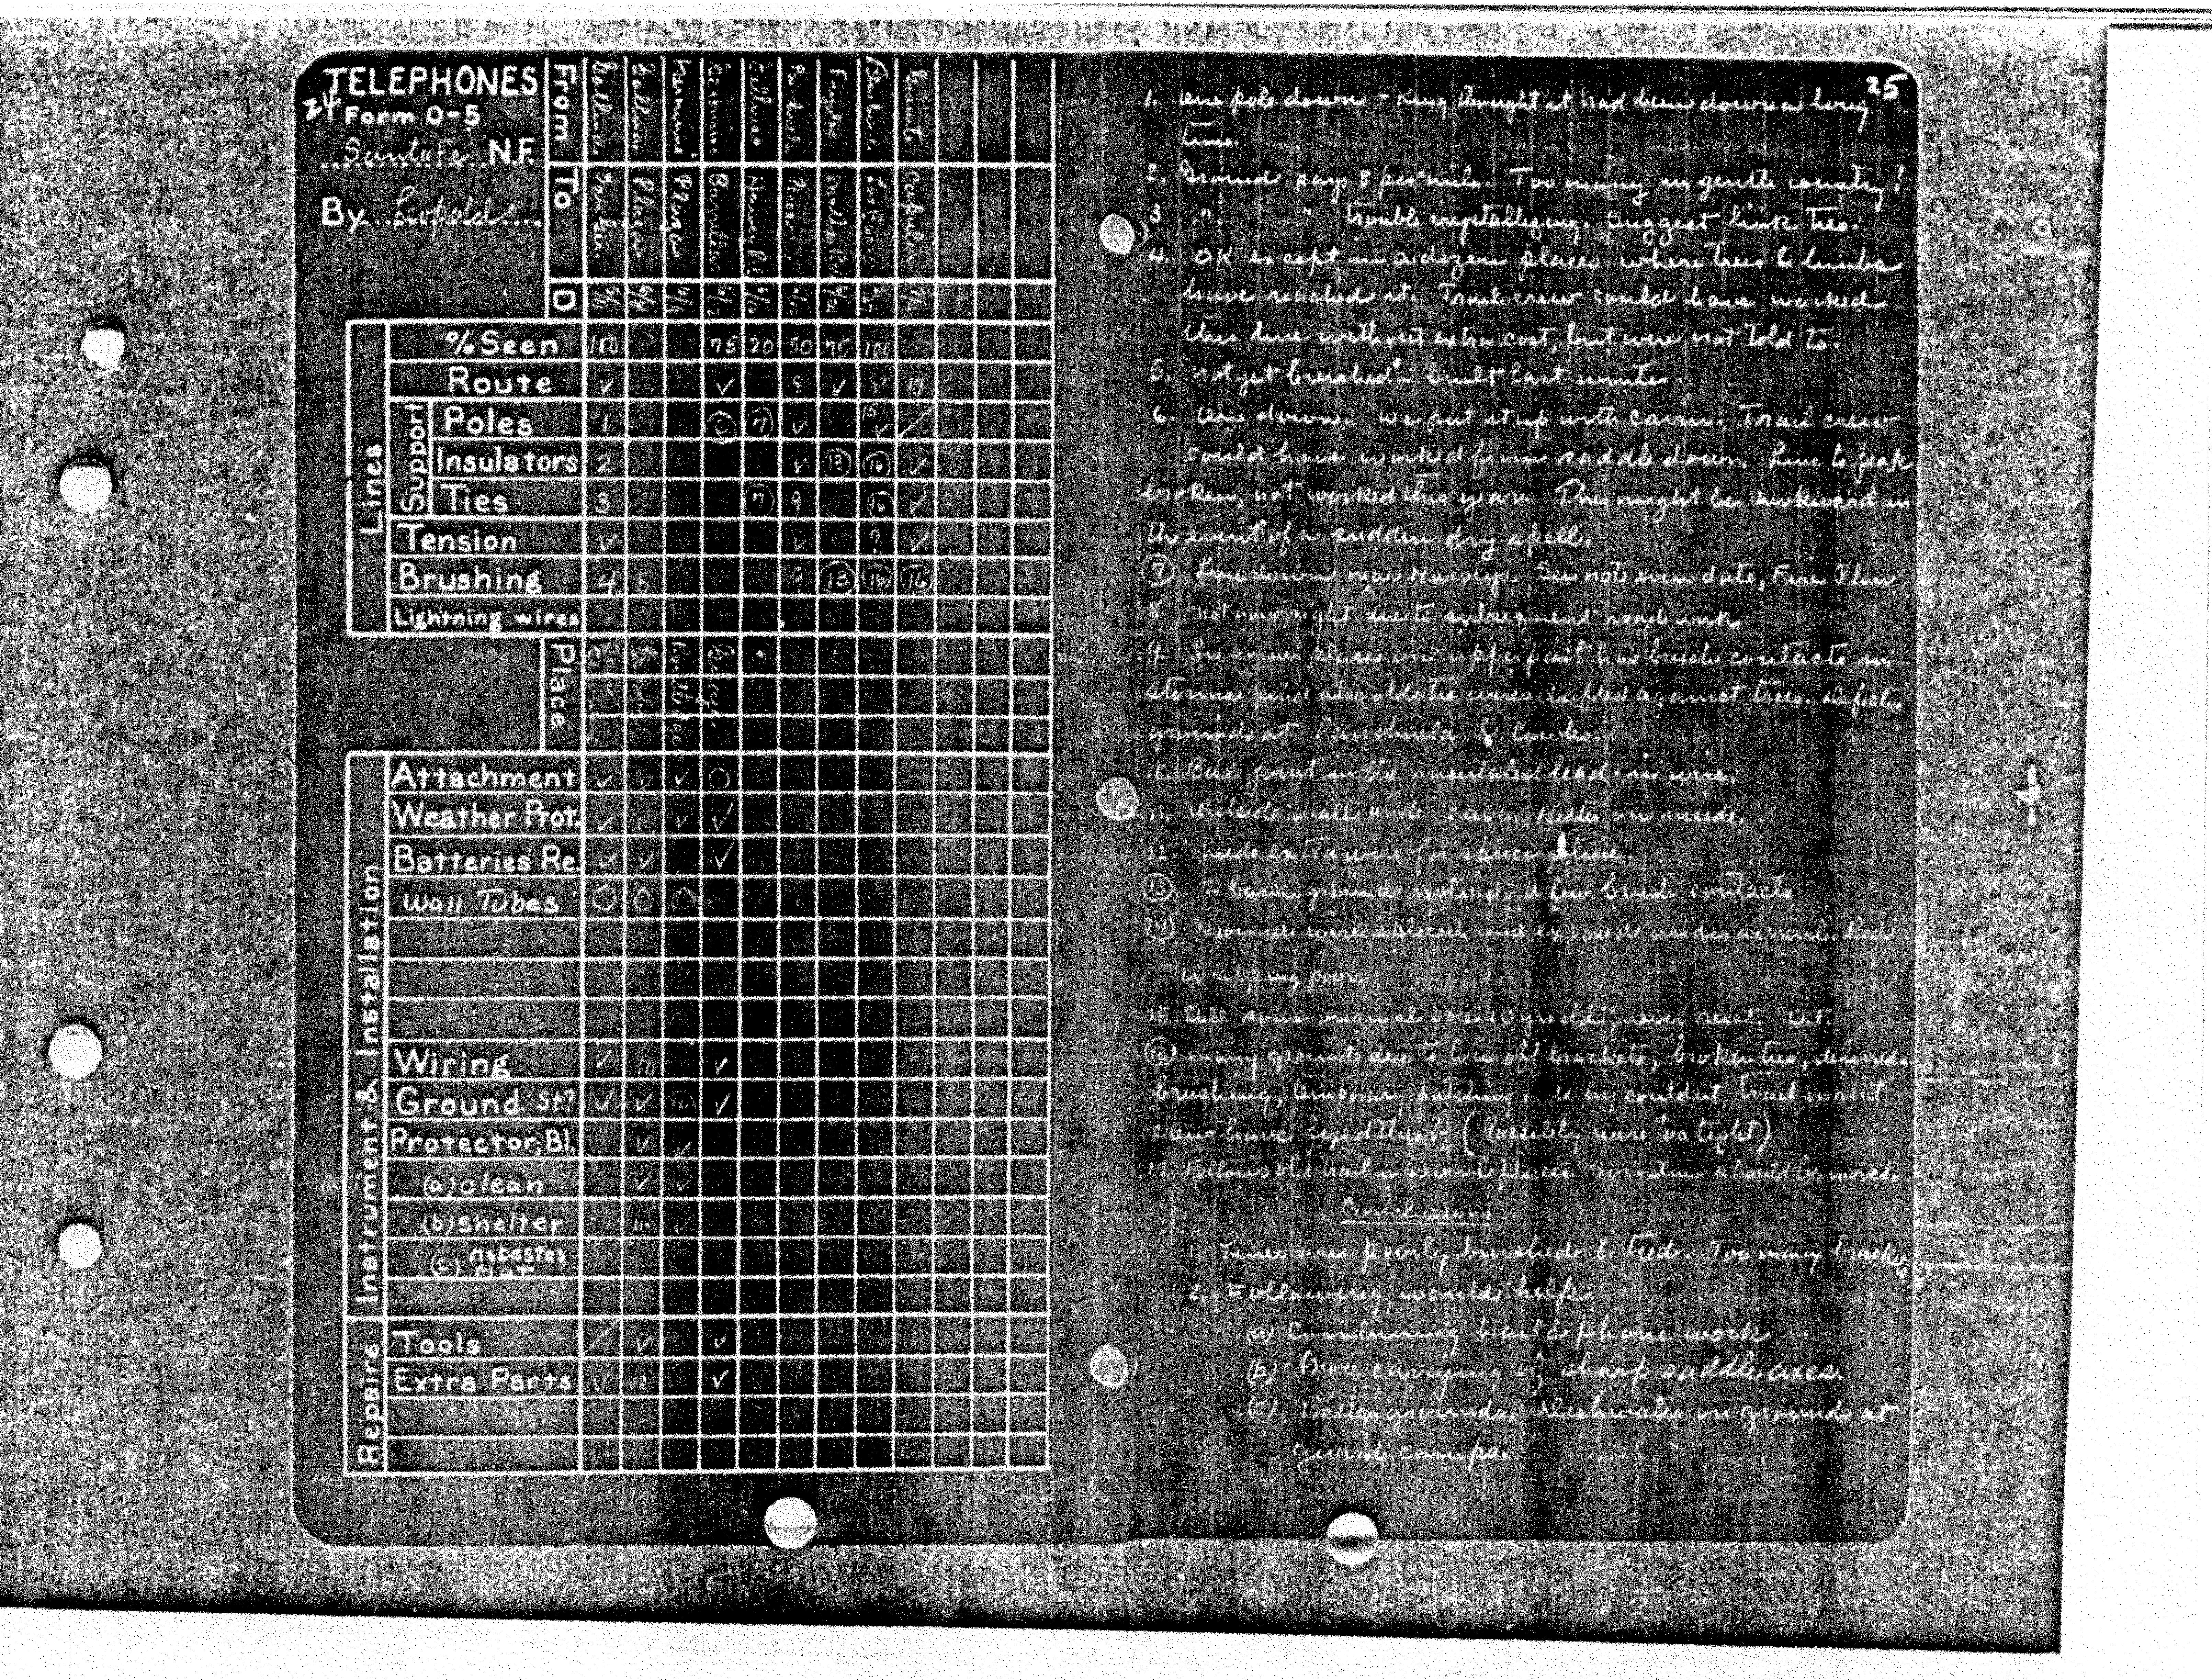 TELEPHONES
24 Form O-5
Santa Fe N.F.
By Leopold
From
To Plaza
D 6/11 6/8 6/9 6/12
Lines
% Seen 100 75 20 50 75 100
Route ✓ ✓ 8 ✓ ✓ 17
Support
Poles 1 6 7 ✓ 15 ✓ /
Insulators 2 ✓ 13 16 ✓
Ties 3 7 9 16 ✓
Tension ✓ ✓ ? ✓
Brushing 4 5 9 13 16 16
Lightning wires
Place
Instrument & Installation
Attachment ✓ ✓ ✓ O
Weather Prot. ✓ ✓ ✓ ✓
Batteries Re. ✓ ✓ ✓
Wall Tubes O O O
Wiring ✓ 10 ✓
Ground. St? ✓ ✓ 14 ✓
Protector; Bl. ✓ ✓
(a) clean ✓ ✓
(b) shelter 11 ✓
(c) Asbestos Mat
Repairs
Tools / ✓ ✓
Extra Parts ✓ 12 ✓
25
1. One pole down - King thought it had been down a long
time.
2. Ground says 8 per mile. Too many in gentle country?
3 " " trouble crystallizing. Suggest link ties.
4. OK except in a dozen places where trees & limbs
have reached it. Trail crew could have worked
this line without extra cost, but were not told to.
5. Not yet brushed - built last winter.
6. One down. We put it up with cairn. Trail crew
could have worked from saddle down. Line to peak
broken, not worked this year. This might be awkward in
the event of a sudden dry spell.
7 Line down near Harveys. See note even date, Fire Plan
8. Not now right due to subsequent road work
9. In some places on upper part has brush contacts in
storms and also old tie wires drifted against trees. Defective
grounds at Panchuela & Cowles.
10. Bad joint in the insulated lead-in wire.
11. Outside wall under eave. Better on inside.
12. Needs extra wire for splicing line.
13 2 bark grounds noticed. A few brush contacts
14 Ground wire spliced and exposed under a nail. Rod
wrapping poor.
15. Still some original poles 10 yrs old, never reset. D.F.
16 Many grounds due to torn off brackets, broken ties, deferred
brushing, temporary patching. Why couldnt trail maint
crew have fixed this? (Possibly wire too tight)
17. Follows old trail in several places. Sometime should be moved.
Conclusions
1. Lines are poorly brushed & tied. Too many brackets
2. Following would help
(a) Combining trail & phone work
(b) More carrying of sharp saddle axes.
(c) Better grounds. Dishwater on grounds at
guard camps.